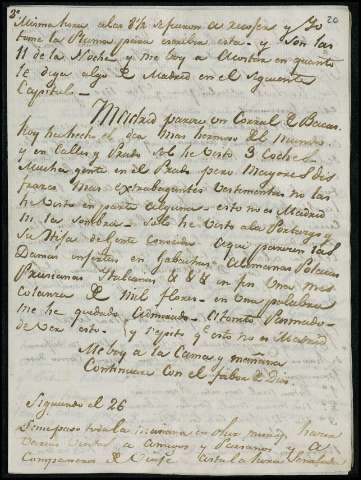 2º 20
Misma hora a las 8½ se fueron a y Yo
tome la Pluma para escribir esta - y son las
11 de la Noche y me boy a Acostar en quanto
le diga algo de Madrid en el siguiente
Capitulo -
Madrid parece un Corral de Bacas.
hoy ha hecho el dia mas hermoso del Mundo
y en Calles y Prado solo he visto 3 Coches
Mucha gente en el Prado pero Mayores des
mas extrabagantes vestimentas no las
he visto en parte alguna - esto no es Madrid
ni la sombra - solo he visto a la y
su Hija de Gente conocida aqui parecen las
Damas Alemanas Polacas
Prusianas Italianas & & & en fin Una mes
colanza de mil flores - en una palabra
me he quedado Admirado - Atonito Pasmado
de ver esto - y repito qe esto no es Madrid
Me boy a la Cama y mañana
Continuare con el fabor de Dios
Siguiendo el 26
toda la mañana en hacer
varias Visitas a amigos y Paisanos y a
Compañeros de Viage hasta la hora